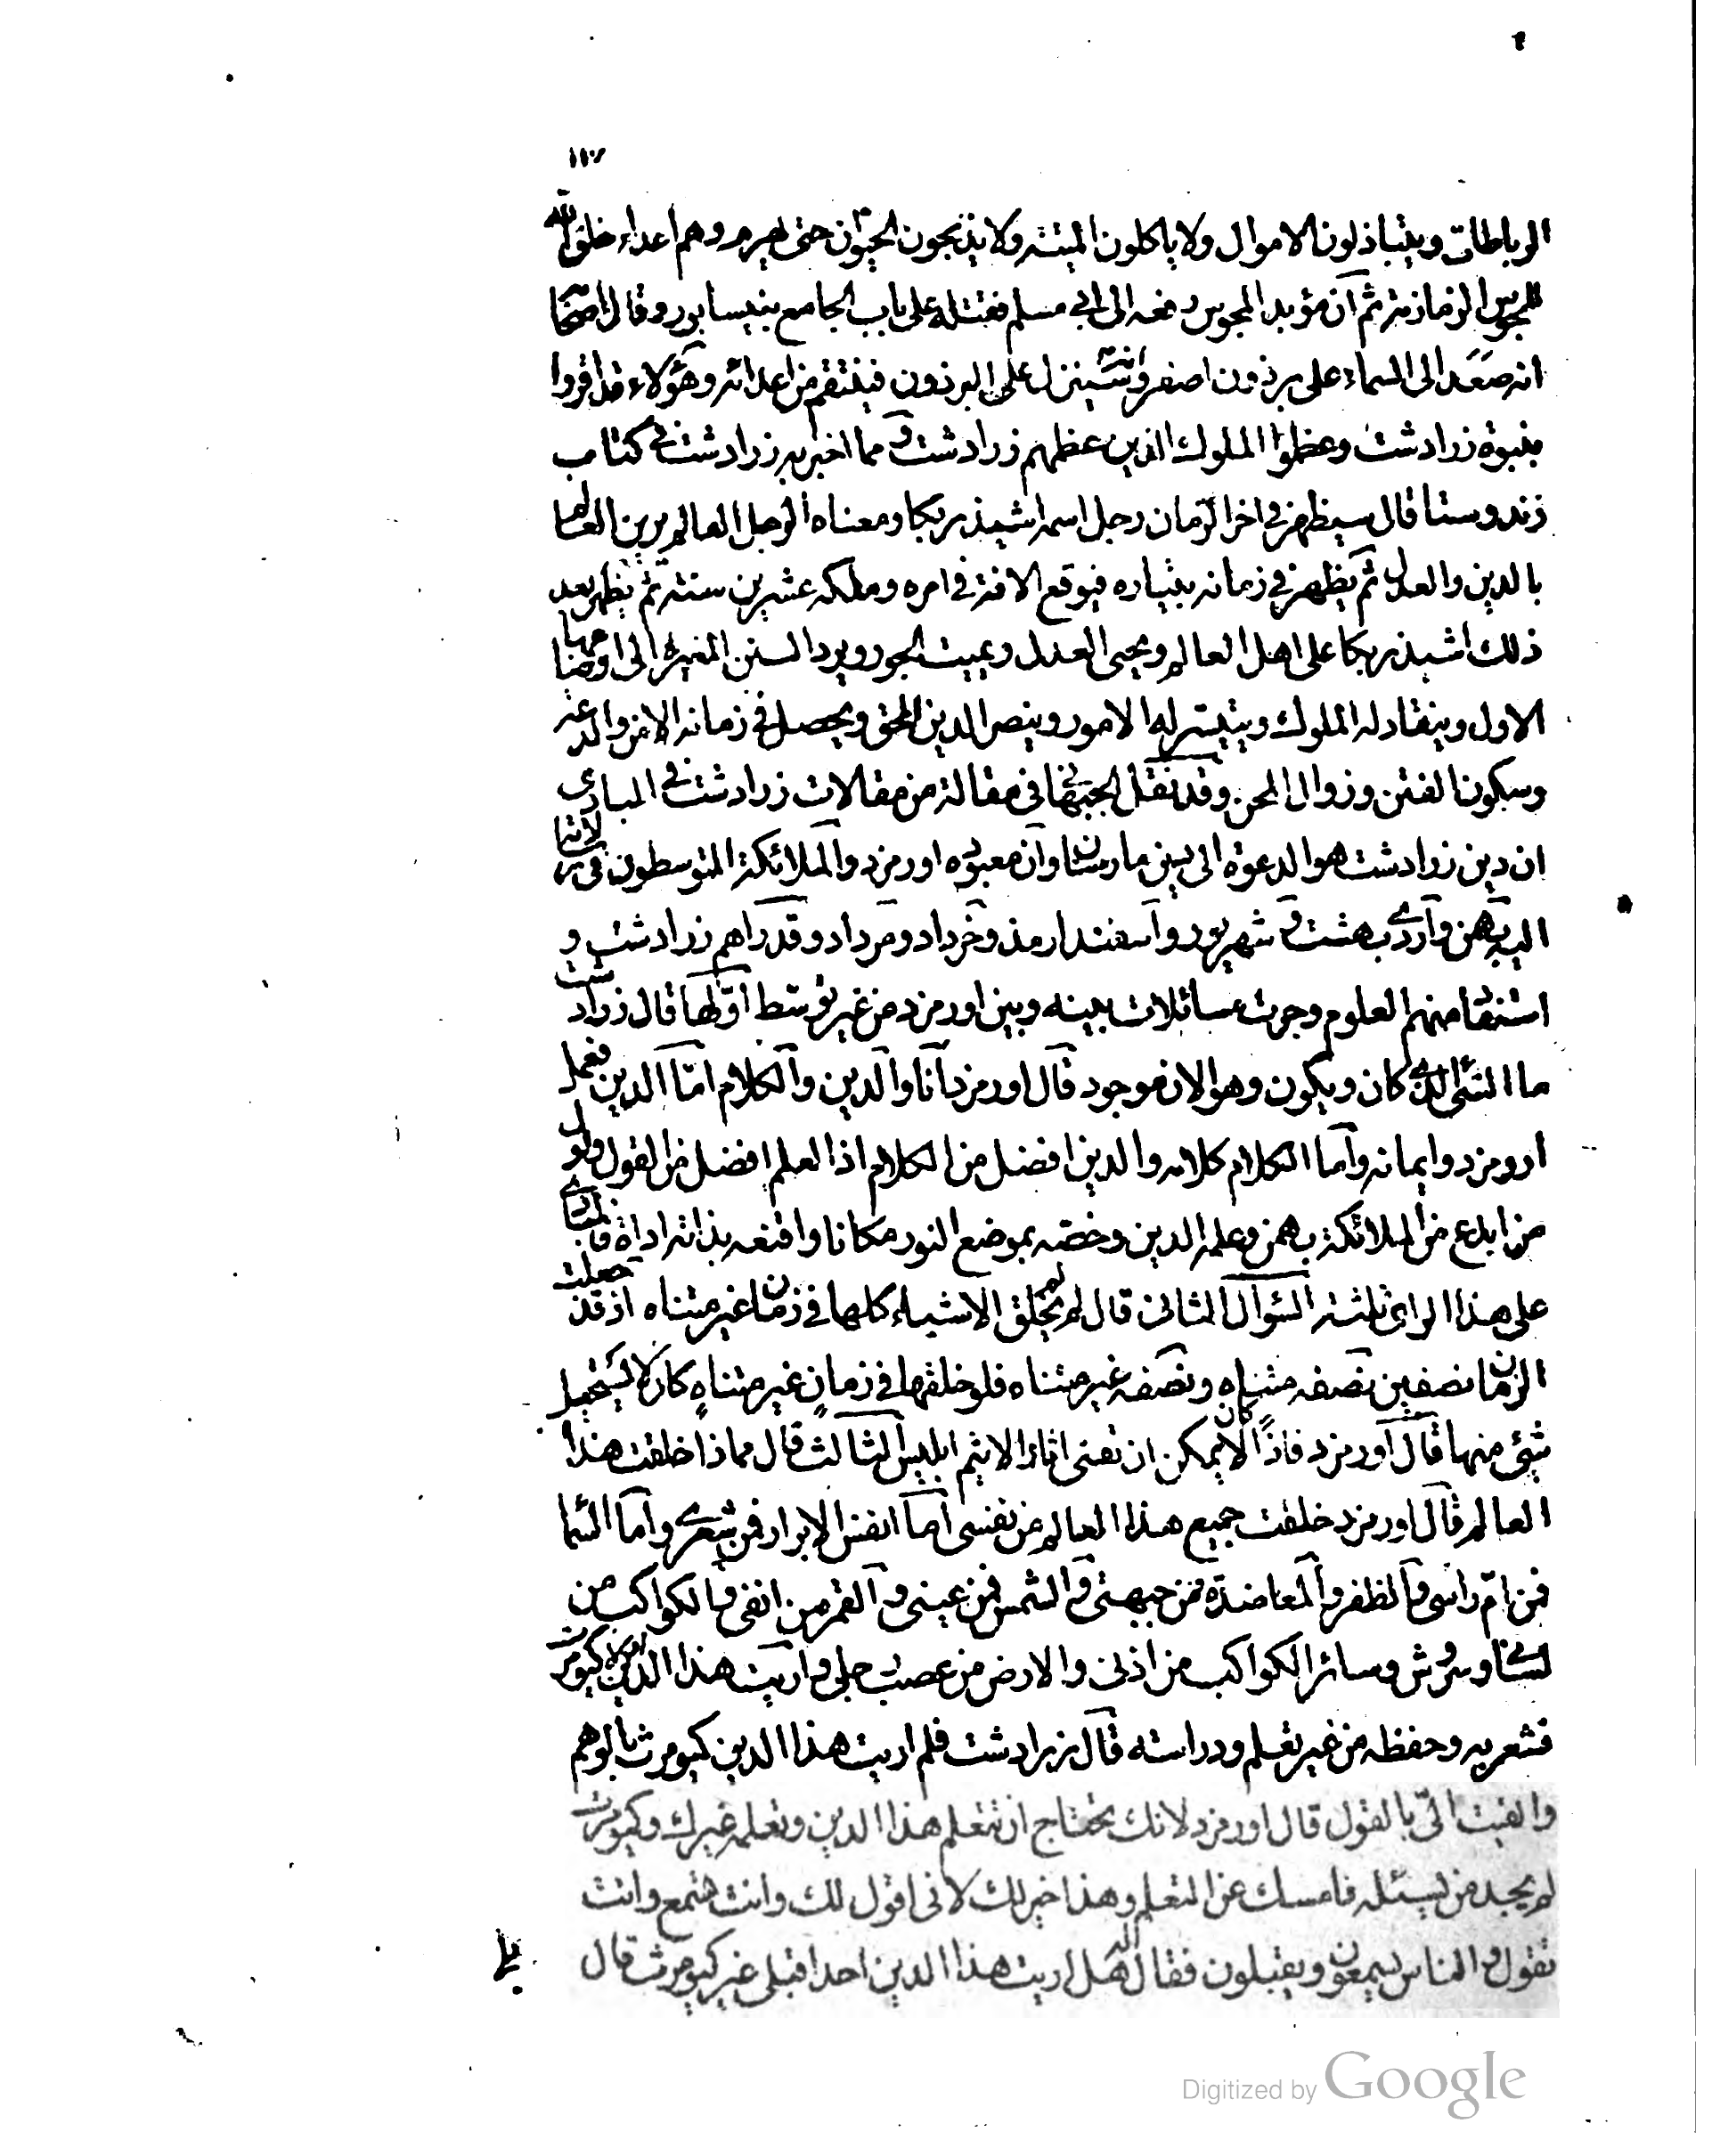 ١١٧
الرباطات ويتباذلون الاموال ولا ياكلون الميتة ولا يذبحون الحيوان حتى يهرم وهم اعداء خلق الله
للمجوس الزمازمة ثم ان مؤبد المجوس رفعه الى ابي مسلم فقتله على باب الجامع بنيسابور وقال اصحابه
انه صعد الى السماء على برذون اصفر وانه سينزل على البرذون فينتقم من اعدائه وهؤلاء قد اقروا
بنبوة زرادشت وعظموا الملوك الذين عظمهم زرادشت ومما اخبر به زرادشت في كتاب
زند وستا قال سيظهر في اخر الزمان رجل اسمه اشيذريكا ومعناه الرجل العالم يزين العالم
بالدين والعدل ثم يظهر في زمانه بتياره فيوقع الافة في امره وملكه عشرين سنة ثم يظهر بعد
ذلك اشيذريكا على اهل العالم ويحيى العدل ويميت الجور ويرد السنن المغيرة الى اوضاعها
الاول وينقاد له الملوك ويتيسر له الامور وينصر الدين الحق ويحصل في زمانه الامن والدعة
وسكون الفتن وزوال المحن وقد نقل الجيهاني في مقالة من مقالات زرادشت في المبادى
ان دين زرادشت هو الدعوة الى دين مارسيان وان معبوده اورمزد والملائكة المتوسطون في رسالاته
اليه بهمن وارديبهشت وشهريور واسفندارمذ وخرداد ومرداد وقد راهم زرادشت و
استفاد منهم العلوم وجرت مسائلات بينه وبين اورمزد من غير توسط اولها قال زرادشت
ما الشئ الذي كان ويكون وهو الان موجود قال اورمزد انا والدين والكلام اما الدين فعمل
اورمزد وايمانه واما الكلام كلامه والدين افضل من الكلام اذ العلم افضل من القول واول
من ابدع من الملائكة بهمن وعلمه الدين وخصه بموضع النور مكانا واقنعه بذاته اداة فالمبادي
على هذا الراى ثلثة السؤال الثانى قال لم لم تخلق الاشياء كلها في زمان غير متناه اذ قد جعلت
الزمان نصفين نصفه متناه ونصفه غير متناه فلو خلقتها في زمان غير متناه كان لا يستحيل
شئ منها قال اورمزد فاذا كان لا يمكن ان تفنى افات الاثيم ابليس الثالث قال مماذا خلقت هذا
العالم قال اورمزد خلقت جميع هذا العالم من نفسى اما انفس الابرار فمن شعري واما السما
فمن ام راسى والظفر والمعاضدة فمن جبهتى والشمس فمن عينى والقمر من انفى والكواكب من
لساني وسروش وسائر الكواكب من اذنى والارض من عصب رجلى واريت هذا الدين اولا كيومرث
فشعر به وحفظه من غير تعلم ودراسته قال زرادشت فلم اريت هذا الدين كيومرث بالوهم
والقيت الىّ بالقول قال اورمزد لانك تحتاج ان تتعلم هذا الدين وتعلمه غيرك وكيومرث
لم يجد من يسئله فامسك عن التعلم وهذا خير لك لانى اقول لك وانت تسمع وانت
تقول والناس يسمعون ويقبلون فقال له هل اريت هذا الدين احدا قبلى غير كيومرث قال
Digitized by Google